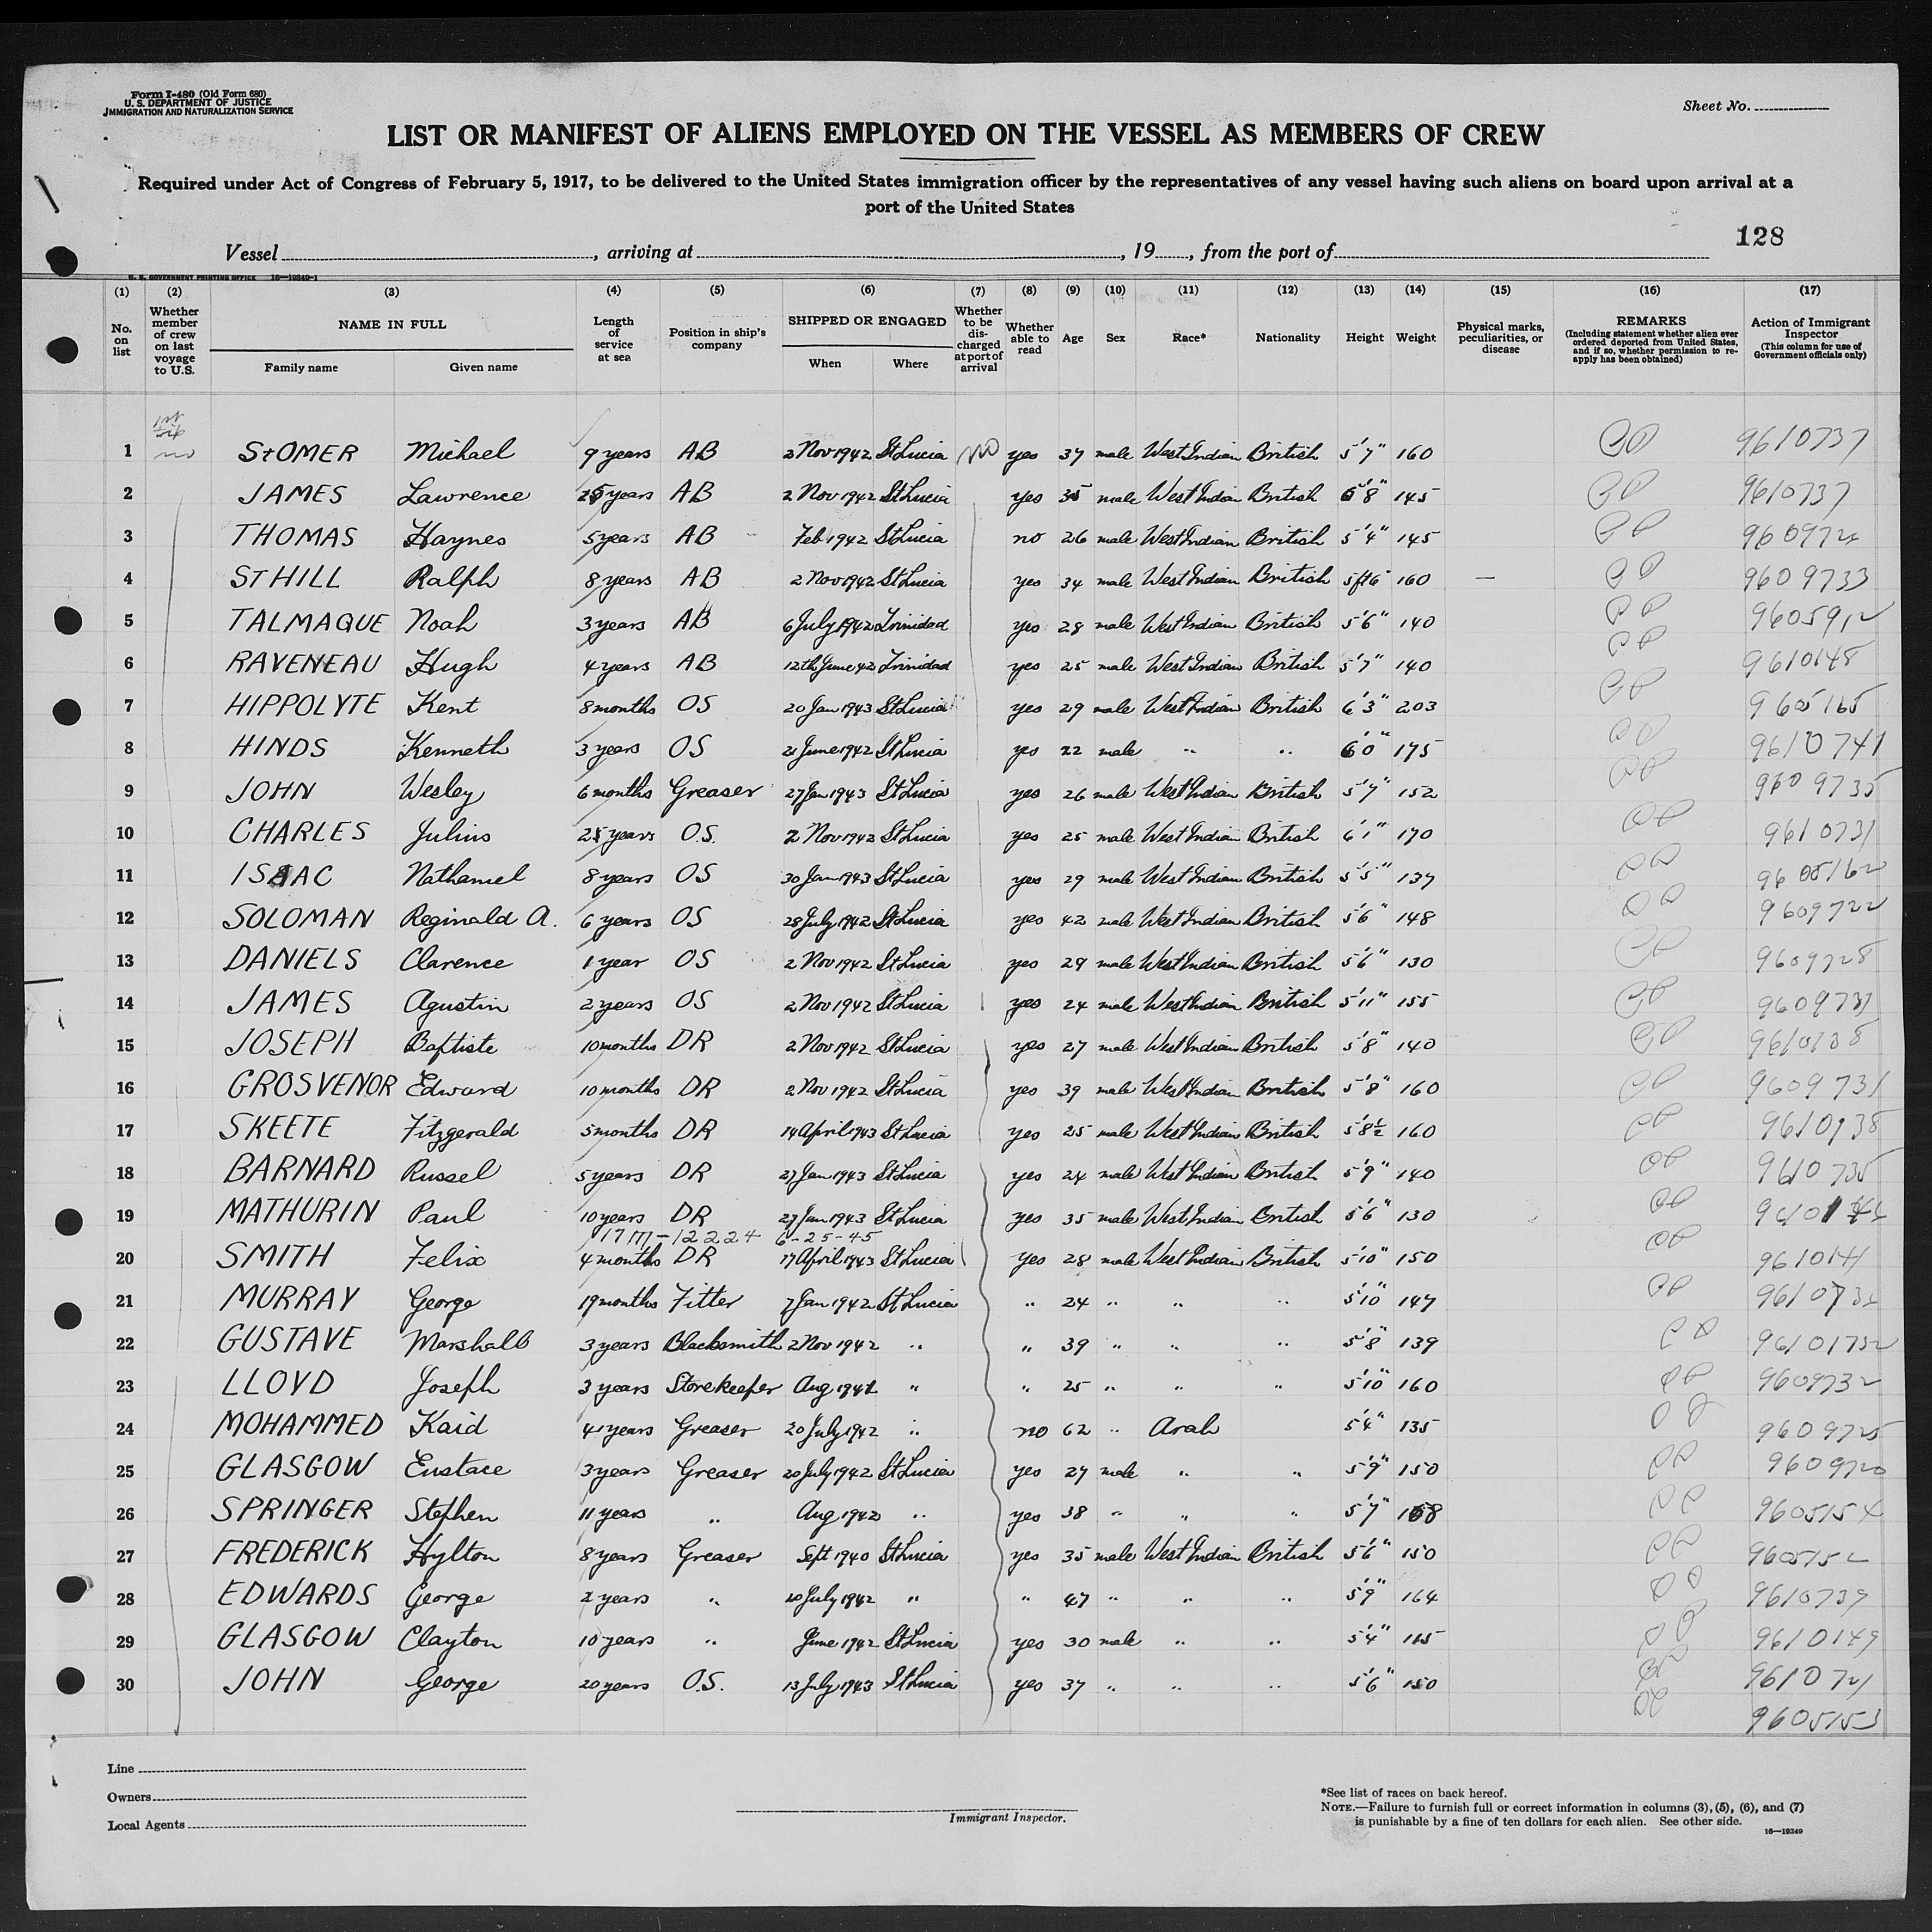 Form I-480 (Old Form 680)
U. S. DEPARTMENT OF JUSTICE
IMMIGRATION AND NATURALIZATION SERVICE
Sheet No.
LIST OR MANIFEST OF ALIENS EMPLOYED ON THE VESSEL AS MEMBERS OF CREW
Required under Act of Congress of February 5, 1917, to be delivered to the United States immigration officer by the representatives of any vessel having such aliens on board upon arrival at a
port of the United States
128
Vessel , arriving at , 19 , from the port of
U. S. GOVERNMENT PRINTING OFFICE 16—19349-1
(1) (2) (3) (4) (5) (6) (7) (8) (9) (10) (11) (12) (13) (14) (15) (16) (17)
No. on list
Whether member of crew on last voyage to U.S.
NAME IN FULL
Family name Given name
Length of service at sea
Position in ship's company
SHIPPED OR ENGAGED
When Where
Whether to be discharged at port of arrival
Whether able to read
Age
Sex
Race*
Nationality
Height
Weight
Physical marks, peculiarities, or disease
REMARKS
(Including statement whether alien ever ordered deported from United States, and if so, whether permission to reapply has been obtained)
Action of Immigrant Inspector
(This column for use of Government officials only)
1st trip
1 no StOMER Michael 9 years AB 2 Nov 1942 St Lucia no yes 37 male West Indian British 5'7" 160 9610737
2 JAMES Lawrence years AB 2 Nov 1942 St Lucia yes 35 male West Indian British 5'8" 145 9610737
3 THOMAS Haynes 5 years AB Feb 1942 St Lucia no 26 male West Indian British 5'4" 145 9609724
4 ST HILL Ralph 8 years AB 2 Nov 1942 St Lucia yes 34 male West Indian British 5ft6" 160 — 9609733
5 TALMAQUE Noah 3 years AB 6 July 1942 Trinidad yes 28 male West Indian British 5'6" 140 9605912
6 RAVENEAU Hugh 4 years AB 12th June 42 Trinidad yes 25 male West Indian British 5'7" 140 9610148
7 HIPPOLYTE Kent 8 months OS 20 Jan 1943 St Lucia yes 29 male West Indian British 6'3" 203 9605165
8 HINDS Kenneth 3 years OS 21 June 1942 St Lucia yes 22 male " " 6'0" 175 9610741
9 JOHN Wesley 6 months Greaser 27 Jan 1943 St Lucia yes 26 male West Indian British 5'7" 152 9609735
10 CHARLES Julius years O.S. 2 Nov 1942 St Lucia yes 25 male West Indian British 6'1" 170 9610731
11 ISAAC Nathaniel 8 years OS 30 Jan 1943 St Lucia yes 29 male West Indian British 5'5" 137 9605162
12 SOLOMAN Reginald A. 6 years OS 28 July 1942 St Lucia yes 42 male West Indian British 5'6" 148 9609722
13 DANIELS Clarence 1 year OS 2 Nov 1942 St Lucia yes 29 male West Indian British 5'6" 130 9609728
14 JAMES Agustin 2 years OS 2 Nov 1942 St Lucia yes 24 male West Indian British 5'11" 155 9609737
15 JOSEPH Baptiste 10 months DR 2 Nov 1942 St Lucia yes 27 male West Indian British 5'8" 140
16 GROSVENOR Edward 10 months DR 2 Nov 1942 St Lucia yes 39 male West Indian British 5'8" 160 9609731
17 SKEETE Fitzgerald 5 months DR 14 April 1943 St Lucia yes 25 male West Indian British 5'8½ 160
18 BARNARD Russel 5 years DR 27 Jan 1943 St Lucia yes 24 male West Indian British 5'9" 140 9610735
19 MATHURIN Paul 10 years DR 27 Jan 1943 St Lucia yes 35 male West Indian British 5'6" 130
1717-12224 6-25-45
20 SMITH Felix 4 months DR 17 April 1943 St Lucia yes 28 male West Indian British 5'10" 150 9610141
21 MURRAY George 19 months Fitter 7 Jan 1942 St Lucia " 24 " " " 5'10" 147
22 GUSTAVE Marshall 3 years Blacksmith 2 Nov 1942 " " 39 " " " 5'8" 139 96101732
23 LLOYD Joseph 3 years Storekeeper Aug 1942 " " 25 " " " 5'10" 160 9609732
24 MOHAMMED Kaid 41 years Greaser 20 July 1942 " no 62 " Arab 5'4" 135 9609725
25 GLASGOW Eustace 3 years Greaser 20 July 1942 St Lucia yes 27 male " " 5'9" 150 9609720
26 SPRINGER Stephen 11 years " Aug 1942 " yes 38 " " " 5'7" 168 9605154
27 FREDERICK Hylton 8 years Greaser Sept 1940 St Lucia yes 35 male West Indian British 5'6" 150 9605152
28 EDWARDS George 2 years " 20 July 1942 " " 47 " " " 5'9" 164 9610739
29 GLASGOW Clayton 10 years " June 1942 St Lucia yes 30 male " " 5'4" 115 9610149
30 JOHN George 20 years O.S. 13 July 1943 St Lucia yes 37 " " " 5'6" 150 9610721
9605153
Line
Owners
Local Agents
Immigrant Inspector.
*See list of races on back hereof.
NOTE.—Failure to furnish full or correct information in columns (3), (5), (6), and (7)
is punishable by a fine of ten dollars for each alien. See other side.
16—19349